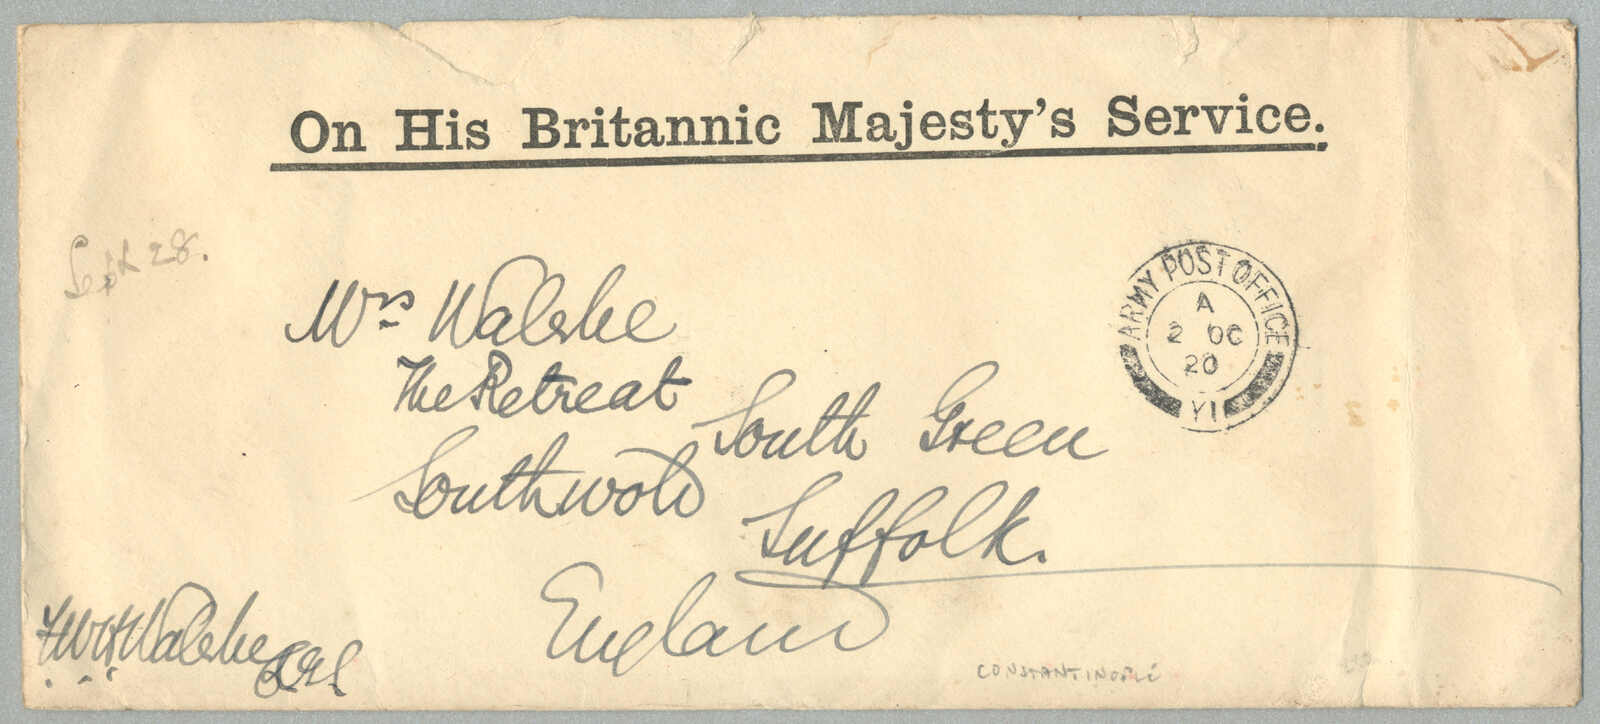 On His Britannic Majesty's Service.
Sept 28.
ARMY POST OFFICE
A
2 OC
20
Y1
Mrs Walshe
The Retreat
South Green
Southwold
Suffolk.
England
FWH Walshe
CONSTANTINOPLE